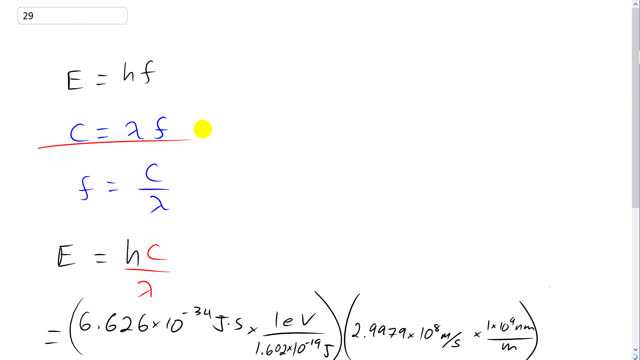 29
E = hf
C = λ f
f = C/λ
E = hC/λ
= (6.626×10⁻³⁴ J·s × 1eV/1.602×10⁻¹⁹ J) (2.9979×10⁸ m/s × 1×10⁹ nm/m)